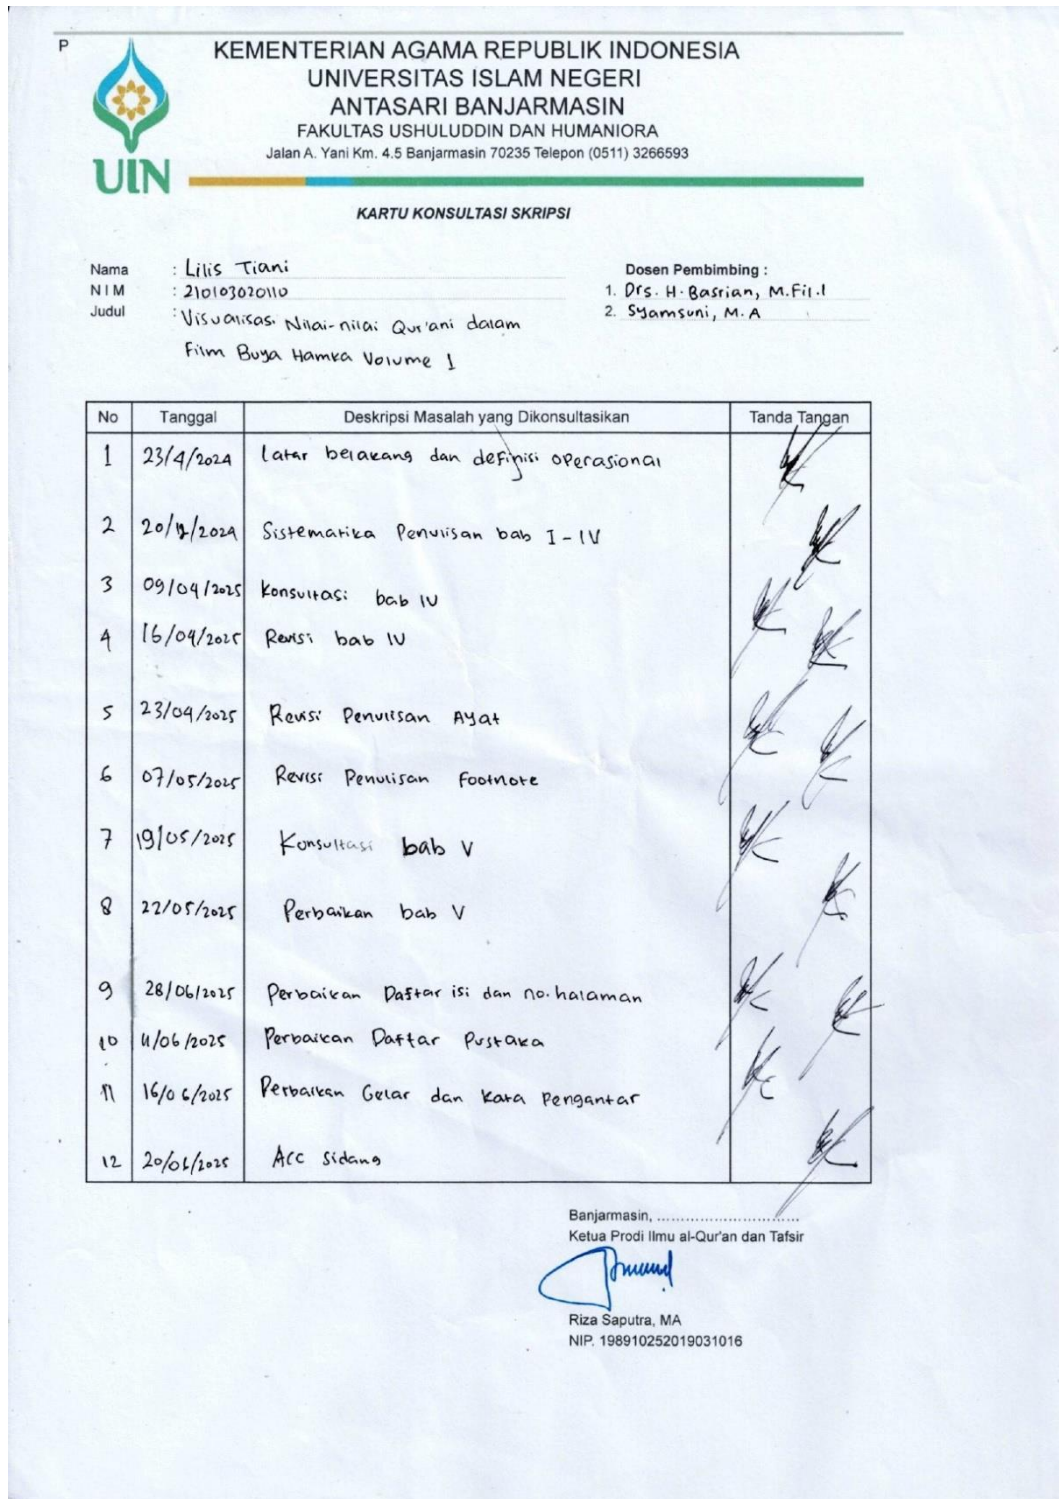 P
KEMENTERIAN AGAMA REPUBLIK INDONESIA
UNIVERSITAS ISLAM NEGERI
ANTASARI BANJARMASIN
FAKULTAS USHULUDDIN DAN HUMANIORA
Jalan A. Yani Km. 4.5 Banjarmasin 70235 Telepon (0511) 3266593
UIN
KARTU KONSULTASI SKRIPSI
Nama : Lilis Tiani
NIM : 210103020110
Judul : Visualisasi Nilai-nilai Qur'ani dalam
Film Buya Hamka Volume 1
Dosen Pembimbing :
1. Drs. H. Basrian, M.Fil.I
2. Syamsuni, M.A
No Tanggal Deskripsi Masalah yang Dikonsultasikan Tanda Tangan
1 23/4/2024 Latar belakang dan definisi operasional
2 20/12/2024 Sistematika Penulisan bab I-IV
3 09/04/2025 Konsultasi bab IV
4 16/04/2025 Revisi bab IV
5 23/04/2025 Revisi Penulisan Ayat
6 07/05/2025 Revisi Penulisan Footnote
7 19/05/2025 Konsultasi bab V
8 22/05/2025 Perbaikan bab V
9 28/06/2025 Perbaikan Daftar isi dan no. halaman
10 11/06/2025 Perbaikan Daftar Pustaka
11 16/06/2025 Perbaikan Gelar dan Kata Pengantar
12 20/06/2025 Acc Sidang
Banjarmasin, ..............................
Ketua Prodi Ilmu al-Qur'an dan Tafsir
Riza Saputra, MA
NIP. 198910252019031016